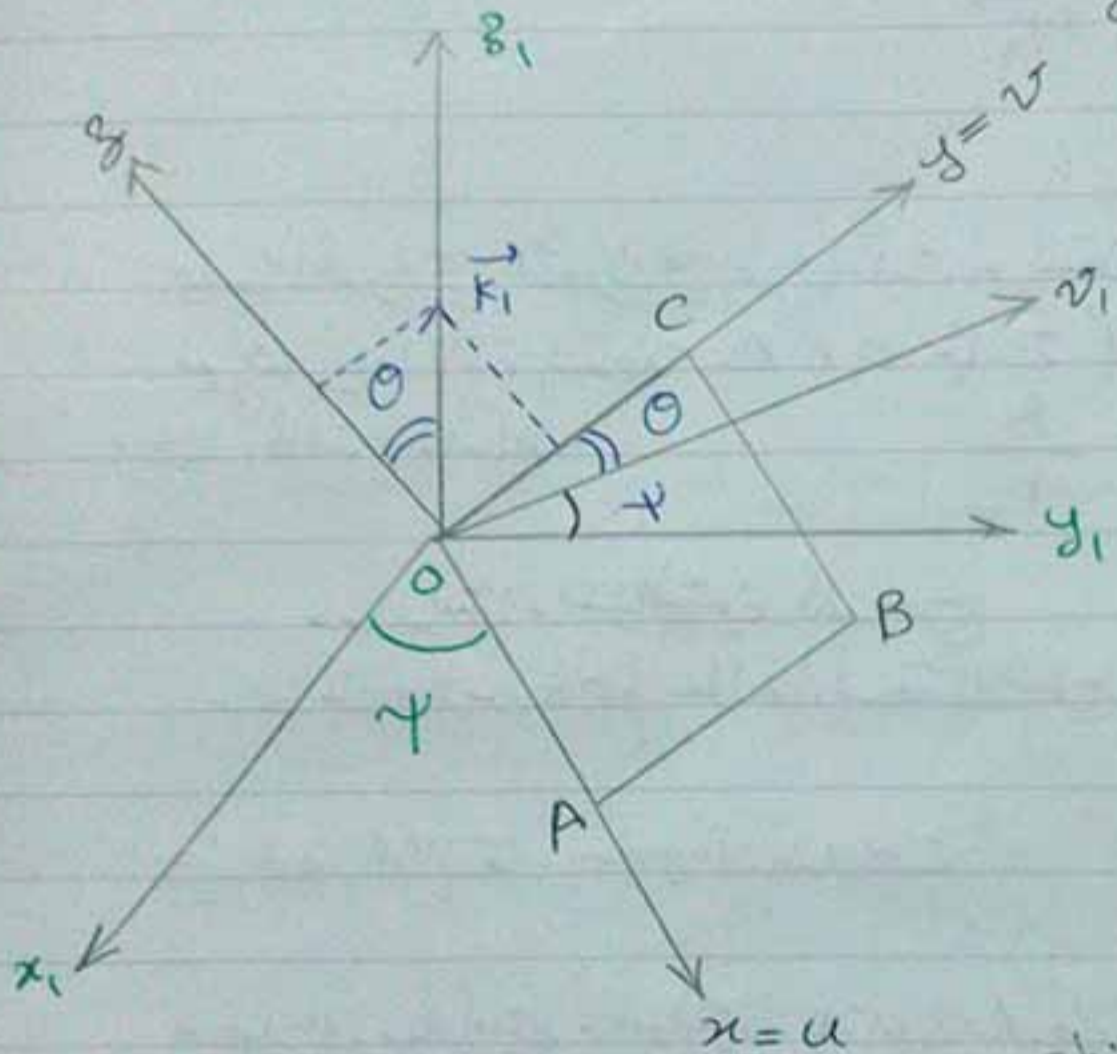 z₁
z
y = v
k₁
v₁
C
θ
θ
ψ
y₁
O
B
ψ
A
x₁
x = u